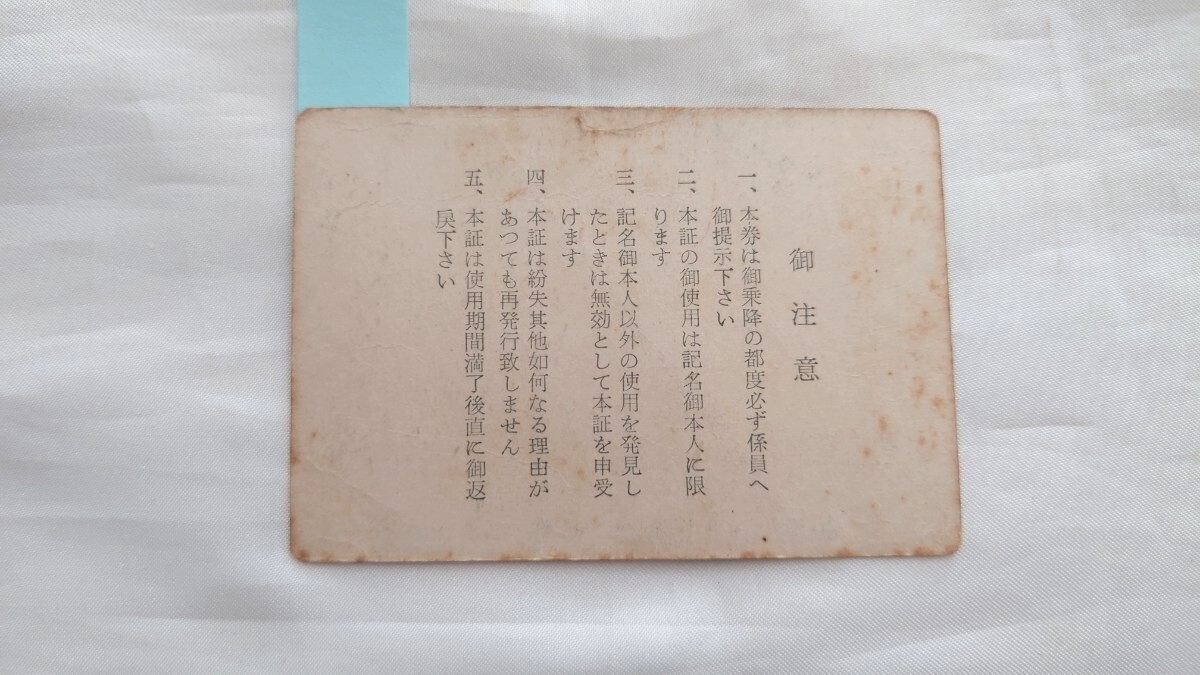 御注意
一、本券は御乗降の都度必ず係員へ
御提示下さい
二、本証の御使用は記名御本人に限
ります
三、記名御本人以外の使用を発見し
たときは無効として本証を申受
けます
四、本証は紛失其他如何なる理由が
あつても再発行致しません
五、本証は使用期間満了後直に御返
戻下さい